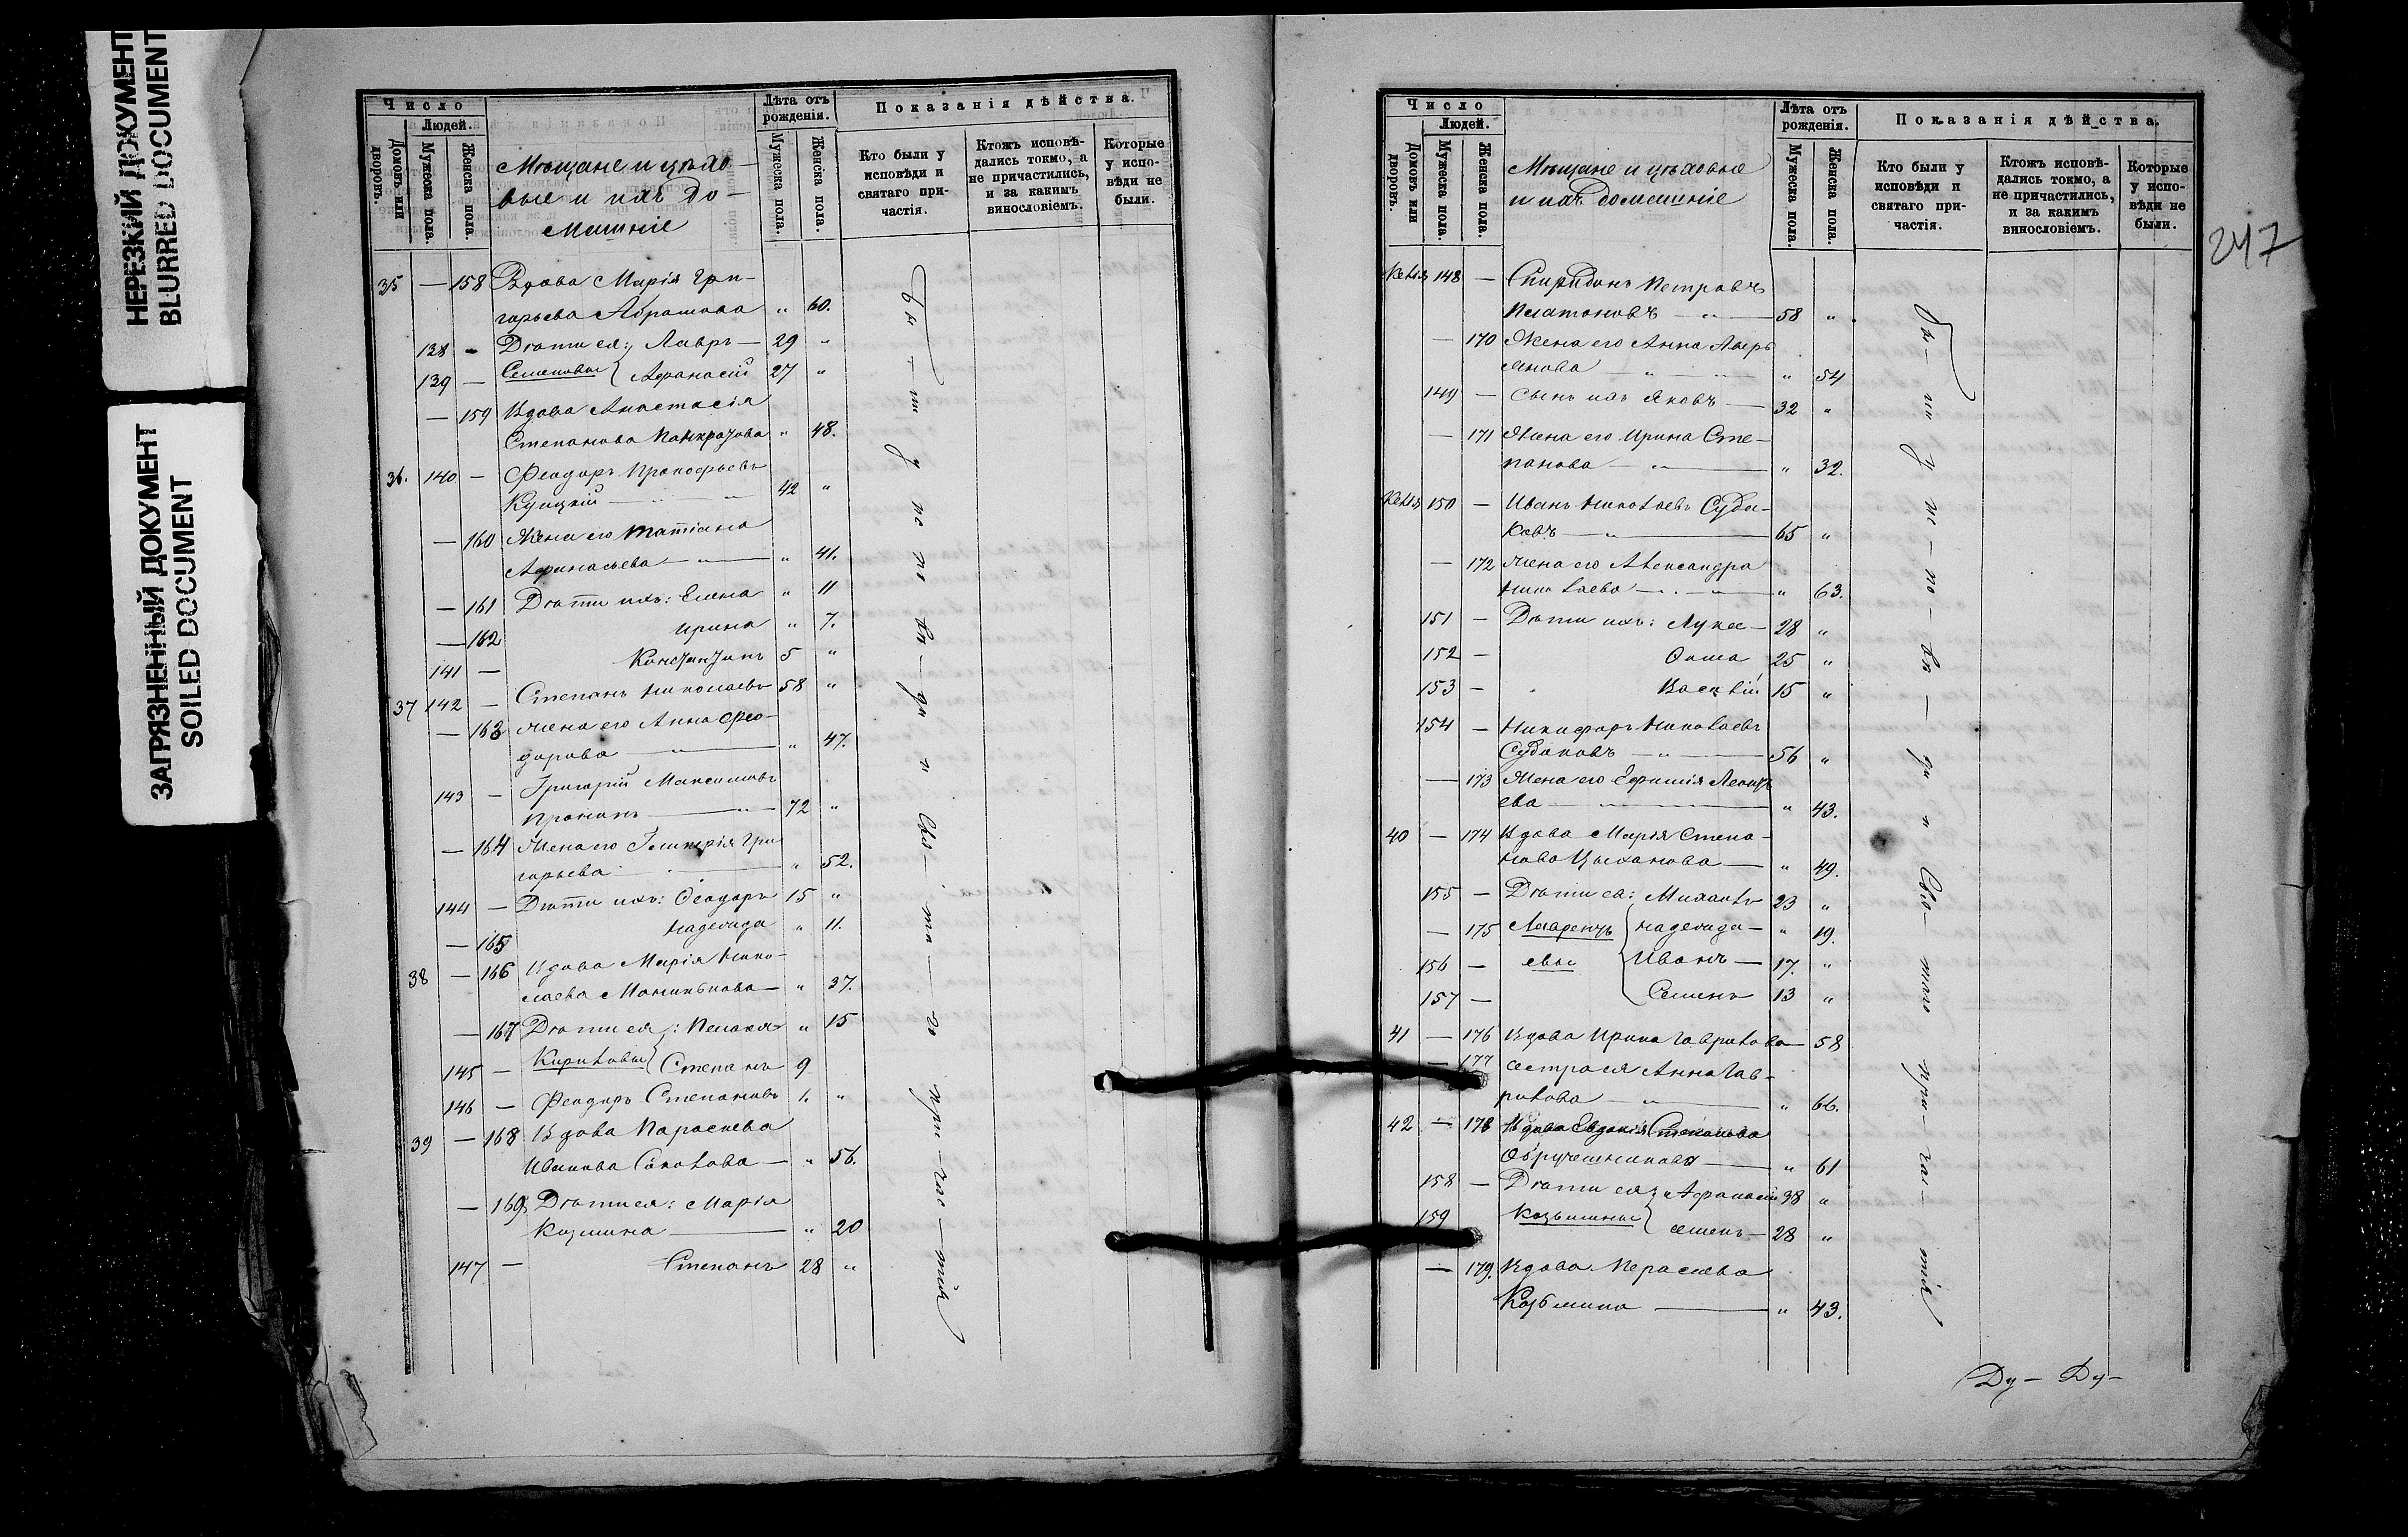 НЕРЕЗКИЙ ДОКУМЕНТ
BLURRED DOCUMENT
ЗАГРЯЗНЕННЫЙ ДОКУМЕНТ
SOILED DOCUMENT
Число
Людей.
Домовъ или дворовъ.
Мужеска пола.
Женска пола.
Мѣщане и цѣхо-
вые и ихъ до-
машніе
Лѣта отъ рожденія.
Мужеска пола.
Женска пола.
Показанія дѣйства.
Кто были у исповѣди и святаго при-частія.
Ктожъ исповѣ-дались токмо, а не причастились, и за какимъ винословіемъ.
Которые у испо-вѣди не были.
35 — 158 Вдова Марія Гри-
горьева Абрамова " 60.
138 - Дѣти ея: Лавръ — 29 "
139 — Семеновы Афанасій 27 "
— 159 Вдова Анастасія
Степанова Панкратова " 48.
36. 140 — Феодоръ Прокофьевъ
42 "
— 160 Жена его Татіана
Афанасьева — " — " 41.
— 161 Дѣти ихъ: Елена " 11
— 162 Ирина " 7.
141 — Константинъ 5 "
37 142 — Степанъ Николаевъ 58 "
— 163 Жена его Анна Фео-
дорова — " — " 47.
143 — Григорій Максимовъ
Пронинъ — " — 72 "
— 164 Жена его Гликерія Гри
горьева " 52.
144 — Дѣти ихъ: Феодоръ 15 "
— 165 Надежда " 11.
38 — 166 Вдова Марія Нико-
лаева — " 37.
— 167 Дѣти ея: Пелагея " 15
145 — Кириловы Степанъ 9
146 — Феодоръ Степановъ 1. "
39 — 168 Вдова Параскева
Иванова Соколова — " 56.
— 169 Дѣти ея: Марія
Козмина — " 20
147 — Степанъ 28 "
бы-ли у ис-по-вѣ-ди и Свя-та-го при-час-тія
Число
Людей.
Домовъ или дворовъ.
Мужеска пола.
Женска пола.
Мѣщане и цѣховые
и ихъ домашніе
Лѣта отъ рожденія.
Мужеска пола.
Женска пола.
Показанія дѣйства.
Кто были у исповѣди и святаго при-частія.
Ктожъ исповѣ-дались токмо, а не причастились, и за какимъ винословіемъ.
Которые у испо-вѣди не были.
247
Келія 148 — Спиридонъ Петровъ
Платоновъ — " — 58 "
— 170 Жена его Анна Авер
янова — " — " 54
149 — Сынъ ихъ Яковъ — 32 "
— 171 Жена его Ирина Сте-
панова — " — " 32.
Келія 150 — Иванъ Николаевъ Суда-
ковъ — " — 65 "
— 172 Жена его Александра
Николаева — " — " 63.
151 — Дѣти ихъ: Лука — 28 "
152 — Фома 25 "
153 — Василій 15 "
154 — Никифоръ Николаевъ
Судаковъ — " — 56 "
— 173 Жена его Ефимія Леонть
ева — " — " 43.
40 — 174 Вдова Марія Степа-
нова Цыханова — " 49.
155 — Дѣти ея: Михаилъ 23 "
— 175 Лаврентьевы Надежда — " 19.
156 — Иванъ — 17. "
157 — Семенъ 13 "
41 — 176 Вдова Ирина Гаврилова — 58
— 177 Сестра ея Анна Гав-
рилова — " — " 66.
42 — 178 Вдова Евдокія Степанова
Обручешникова — " 61
158 — Дѣти ея: Афанасій 38 "
159 Козьмины Семенъ — 28 "
— 179. Вдова Параскева
Козьмина — " 43.
бы-ли у ис-по-вѣ-ди и Свя-таго при-час-тія
Ду— Ду—